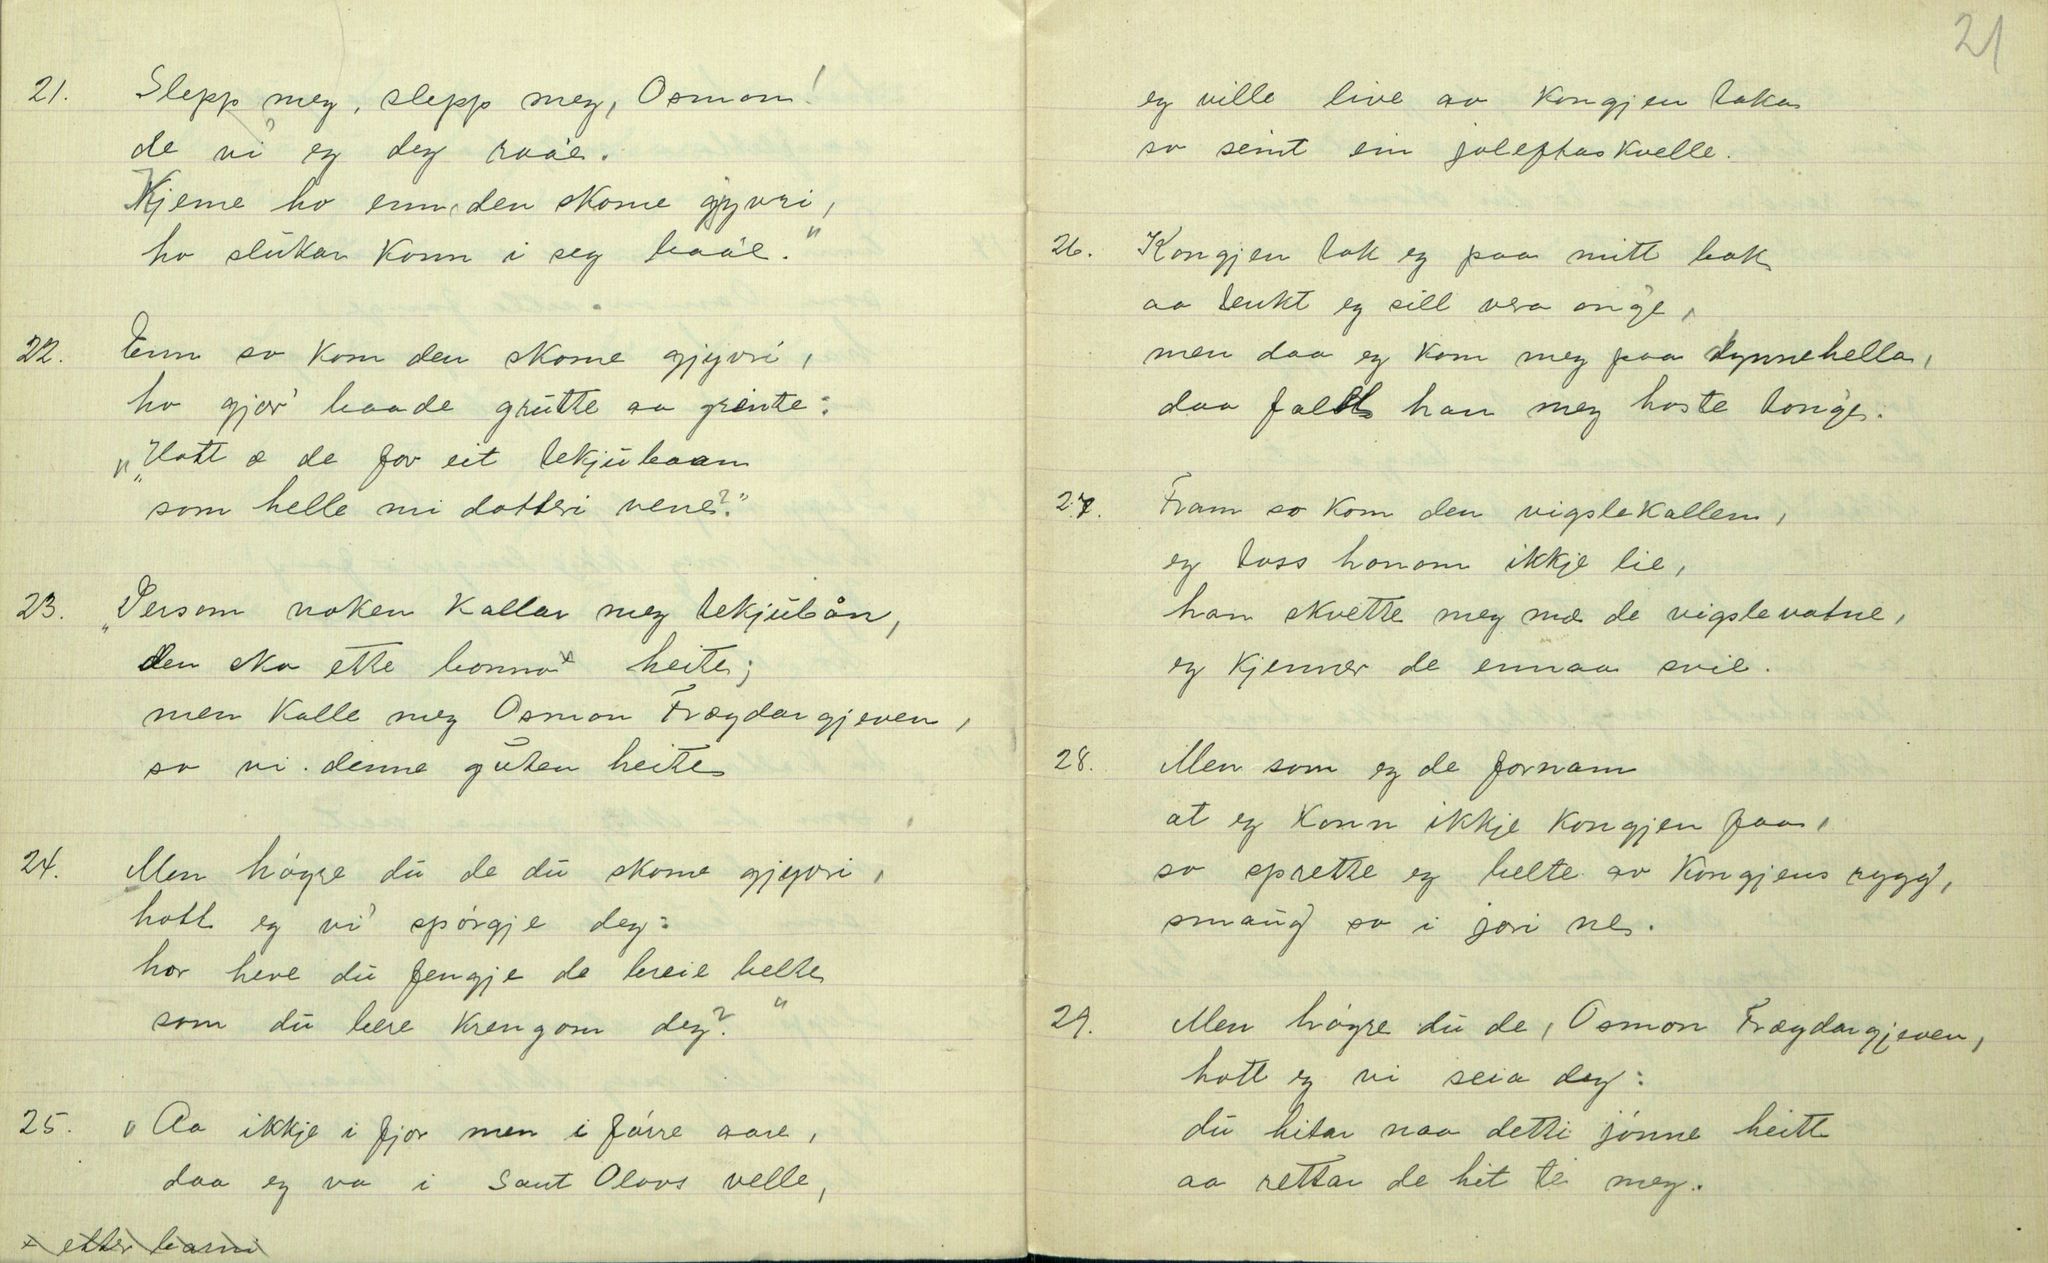 21. Slepp meg, slepp meg, Osmon!
de vi' eg deg raae.
Kjeme ho enn, den skome gjyvri,
ho slukar konn i seg baae."
22. Enn so kom den skome gjyvri,
ho gjor' baade grutte aa grinte:
"„Hott æ de for eit tekjubaan
som helle mi dotteri vene?"
23. „Dersom noken kallar meg tekjubån,
den ska ette bonna x heite;
men kalle meg Osmon Frægdargjeven,
so vi denne guten heite
24. Men høgre du de du skome gjyvri,
hott eg vi' spørgje deg:
hor heve du fengje de breie belte
som du bere krengom deg?"
25. "Aa ikkje i fjor men i førre aare,
daa eg va i Sant Olavs velle,
x etter barni
21
eg ville live av kongjen taka
so seint ein joleftaskvelle.
26. Kongjen tok eg paa mitt bak
aa tenkt eg sill vera onge,
men daa eg kom meg paa dynnehella,
daa fall han meg haste tonge.
27. Fram so kom den vigslekallen,
eg torss honom ikkje lie,
han skvette meg mæ de vigslevatne,
eg kjenner de ennaa svie.
28. Men som eg de fornam
at eg konn ikkje kongjen faa,
so sprette eg belte av kongjens rygg,
smaug so i jori ne.
29. Men høgre du de, Osmon Frægdargjeven,
hott eg vi seia deg:
du hitar naa detti jønne heitt
aa rettar de hit te meg.